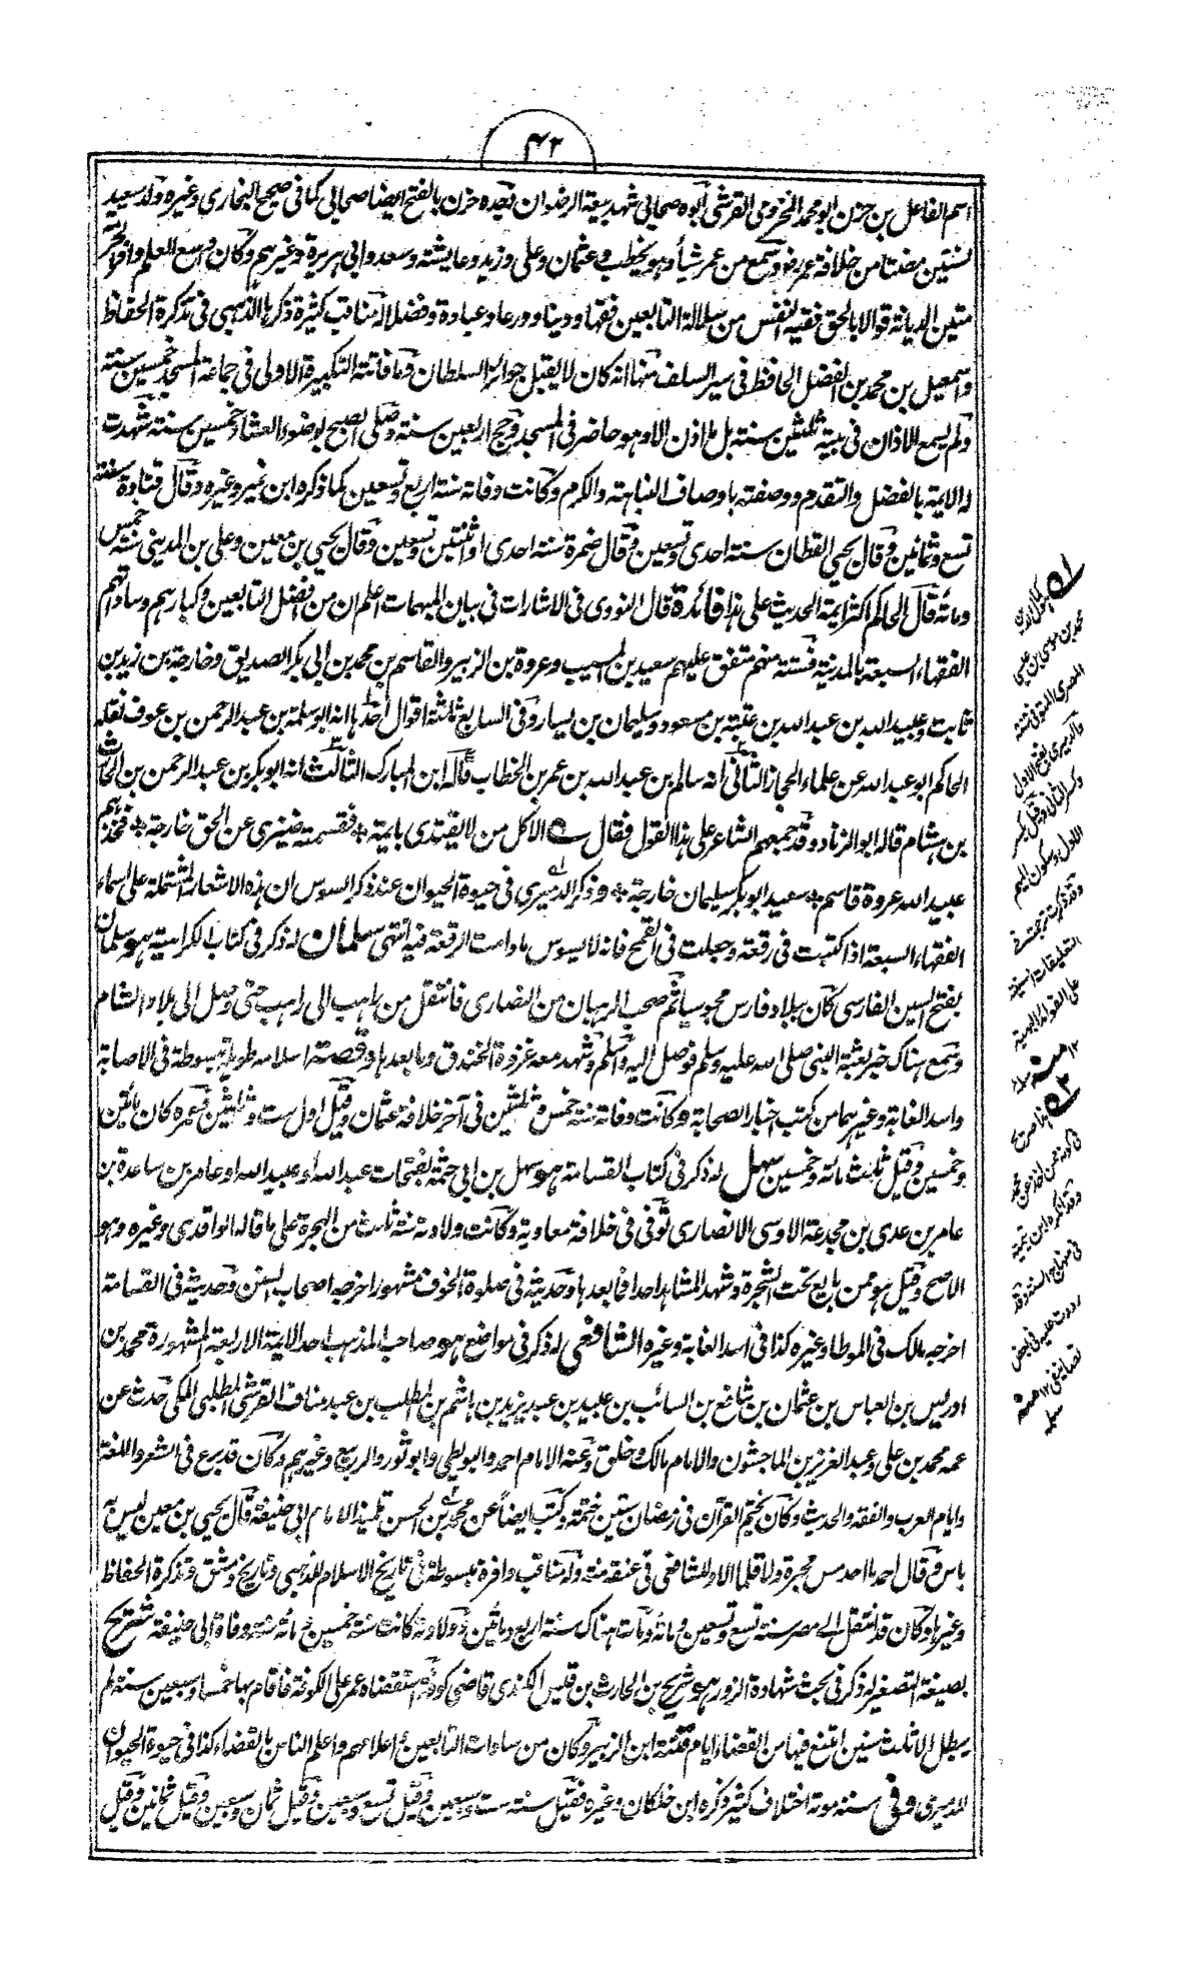 ٤٢
اسم الفاعل بن حزن ابو محمد المخزومي القرشي أبوه صحابي شهد بيعة الرضوان وجده حزن بالفتح ايضا صحابي كما في صحيح البخاري وغيره ولد سعيد
لسنتين مضتا من خلافة عمر رض وسمع من عمر شيأ وهو يخطب وعثمان وعلي وزيد وعايشة وسعد وابي هريرة وغيرهم وكان واسع العلم وافر الحرمة
متين الديانة قوالا بالحق فقيه النفس من سلالة التابعين فقها ودينا وورعا وعبادة وفضلا له مناقب كثيرة ذكرها الذهبي في تذكرة الحفاظ
واسمعيل بن محمد بن الفضل الحافظ في سير السلف منها انه كان لا يقبل جوائز السلطان وما فاتته التكبيرة الاولى في جماعة المسجد خمسين سنة
ولم يسمع الاذان في بيته ثلثين سنة بل ما اذن الا وهو حاضر في المسجد وحج اربعين سنة وصلى الصبح بوضوء العشاء خمسين سنة شهدت
له الايمة بالفضل والتقدم ووصفته باوصاف النباهة والكرم وكانت وفاته سنة اربع وتسعين كما ذكره ابن نمير وغيره وقال قتادة سنة
تسع وثمانين وقال يحيى القطان سنة احدى وتسعين وقال ضمرة سنة احدى او اثنتين وتسعين وقال يحيى بن معين وعلي بن المديني سنة خمس
ومائة قال الحاكم اكثر ايمة الحديث على هذا فائدة قال النووي في الاشارات في بيان المبهمات اعلم ان من افضل التابعين وكبارهم وساداتهم
الفقهاء السبعة بالمدينة فستة منهم متفق عليهم سعيد بن المسيب وعروة بن الزبير والقاسم بن محمد بن ابي بكر الصديق وخارجة بن زيد بن
ثابت وعبيد الله بن عبد الله بن عتبة بن مسعود وسليمان بن يسار وفي السابع ثلثة اقوال احدها انه ابو سلمة بن عبد الرحمن بن عوف نقله
الحاكم ابو عبد الله عن علماء الحجاز الثاني انه سالم بن عبد الله بن عمر بن الخطاب قاله ابن المبارك الثالث انه ابو بكر بن عبد الرحمن بن الحارث
بن هشام قاله ابو الزناد وقد جمعهم الشاعر على هذا القول فقال ع الاكل من لا يقتدى بايمة * فقسمته ضيزى عن الحق خارجة * فخذهم
عبيد الله عروة قاسم * سعيد ابو بكر سليمان خارجة * وذكر الدميري في حيوة الحيوان عند ذكر السوس ان هذه الاشعار المشتملة على اسماء
الفقهاء السبعة اذا كتبت في رقعة وجعلت في القمح فانه لا يسوس ما دامت الرقعة فيه انتهى سلمان له ذكر في كتاب الكراهية هو سلمان
بفتح السين الفارسي كان ببلاد فارس مجوسيا ثم صحب الرهبان من النصارى فانتقل من راهب الى راهب حتى وصل الى بلاد الشام
وسمع هناك خبر بعثة النبي صلى الله عليه وسلم فوصل اليه واسلم وشهد معه غزوة الخندق وما بعدها وقصة اسلامه طويلة مبسوطة في الاصابة
واسد الغابة وغيرهما من كتب اخبار الصحابة وكانت وفاته سنة خمس وثلثين في آخر خلافة عثمان وقيل اول ست وثلثين وعمره كان مائتين
وخمسين وقيل ثلث مائة وخمسين سهل له ذكر في كتاب القسامة هو سهل بن ابي حثمة بفتحات عبد الله او عبيد الله او عامر بن ساعدة بن
عامر بن عدي بن مجدعة الاوسي الانصاري توفي في خلافة معاوية وكانت ولادته سنة ثلث من الهجرة على ما قاله الواقدي وغيره وهو
الاصح وقيل هو ممن بايع تحت الشجرة وشهد المشاهد احدا فما بعدها وحديثه في صلوة الخوف مشهور اخرجه اصحاب السنن وحديثه في القسامة
اخرجه مالك في الموطا وغيره كذا في اسد الغابة وغيره الشافعي له ذكر في مواضع هو صاحب المذهب احد الايمة الاربعة المشهورة محمد بن
ادريس بن العباس بن عثمان بن شافع بن السائب بن عبيد بن عبد يزيد بن هاشم بن المطلب بن عبد مناف القرشي المطلبي المكي حدث عن
عمه محمد بن علي وعبد العزيز بن الماجشون والامام مالك وخلق وعنه الامام احمد والبويطي وابو ثور والربيع وغيرهم وكان قد برع في الشعر واللغة
وايام العرب والفقه والحديث وكان يختم القرآن في رمضان ستين ختمة وكتب ايضا عن محمد بن الحسن تلميذ الامام ابي حنيفة قال يحيى بن معين ليس به
باس وقال احمد ما احد مس محبرة ولا قلما الا وللشافعي في عنقه منة وله مناقب وافرة مبسوطة في تاريخ الاسلام للذهبي وتاريخ دمشق وتذكرة الحفاظ
وغيرها وكان قد انتقل الى مصر سنة تسع وتسعين ومائة ومات هناك سنة اربع ومائتين وولادته كانت سنة خمسين ومائة سنة وفاة ابي حنيفة شريح
بصيغة التصغير له ذكر في بحث شهادة الزور هو شريح بن الحارث بن قيس الكندي قاضي كوفة استقضاه عمر على الكوفة فاقام بها خمسا وسبعين سنة لم
يبطل الا ثلث سنين امتنع فيها من القضاء ايام فتنة ابن الزبير وكان من سادات التابعين واعلامهم واعلم الناس بالقضاء كذا في حيوة الحيوان
للدميري وفي سنة موته اختلاف كثير ذكره ابن خلكان وغيره فقيل سنة ست وسبعين وقيل تسع وسبعين وقيل ثمان وسبعين وقيل ثمانين وقيل
محمد بن موسى بن عيسى
المصري المتوفى سنة
والدميري بفتح الاول
وكسر الثاني وقيل بكسر
الاول وسكون الميم
وقد ذكرت ترجمته في
التعليقات السنية
على الفوائد البهية
١٢ منه
هذا صريح
في كونه ممن اخذ عن محمد
وقد انكره ابن تيمية
في منهاج السنة وقد
رددت عليه في بعض
تصانيفي ١٢ منه